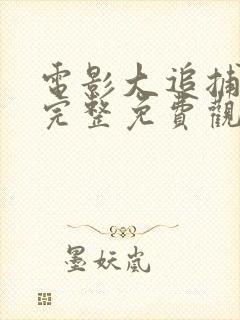 電影大追捕
完整免費觀
墨妖嵐